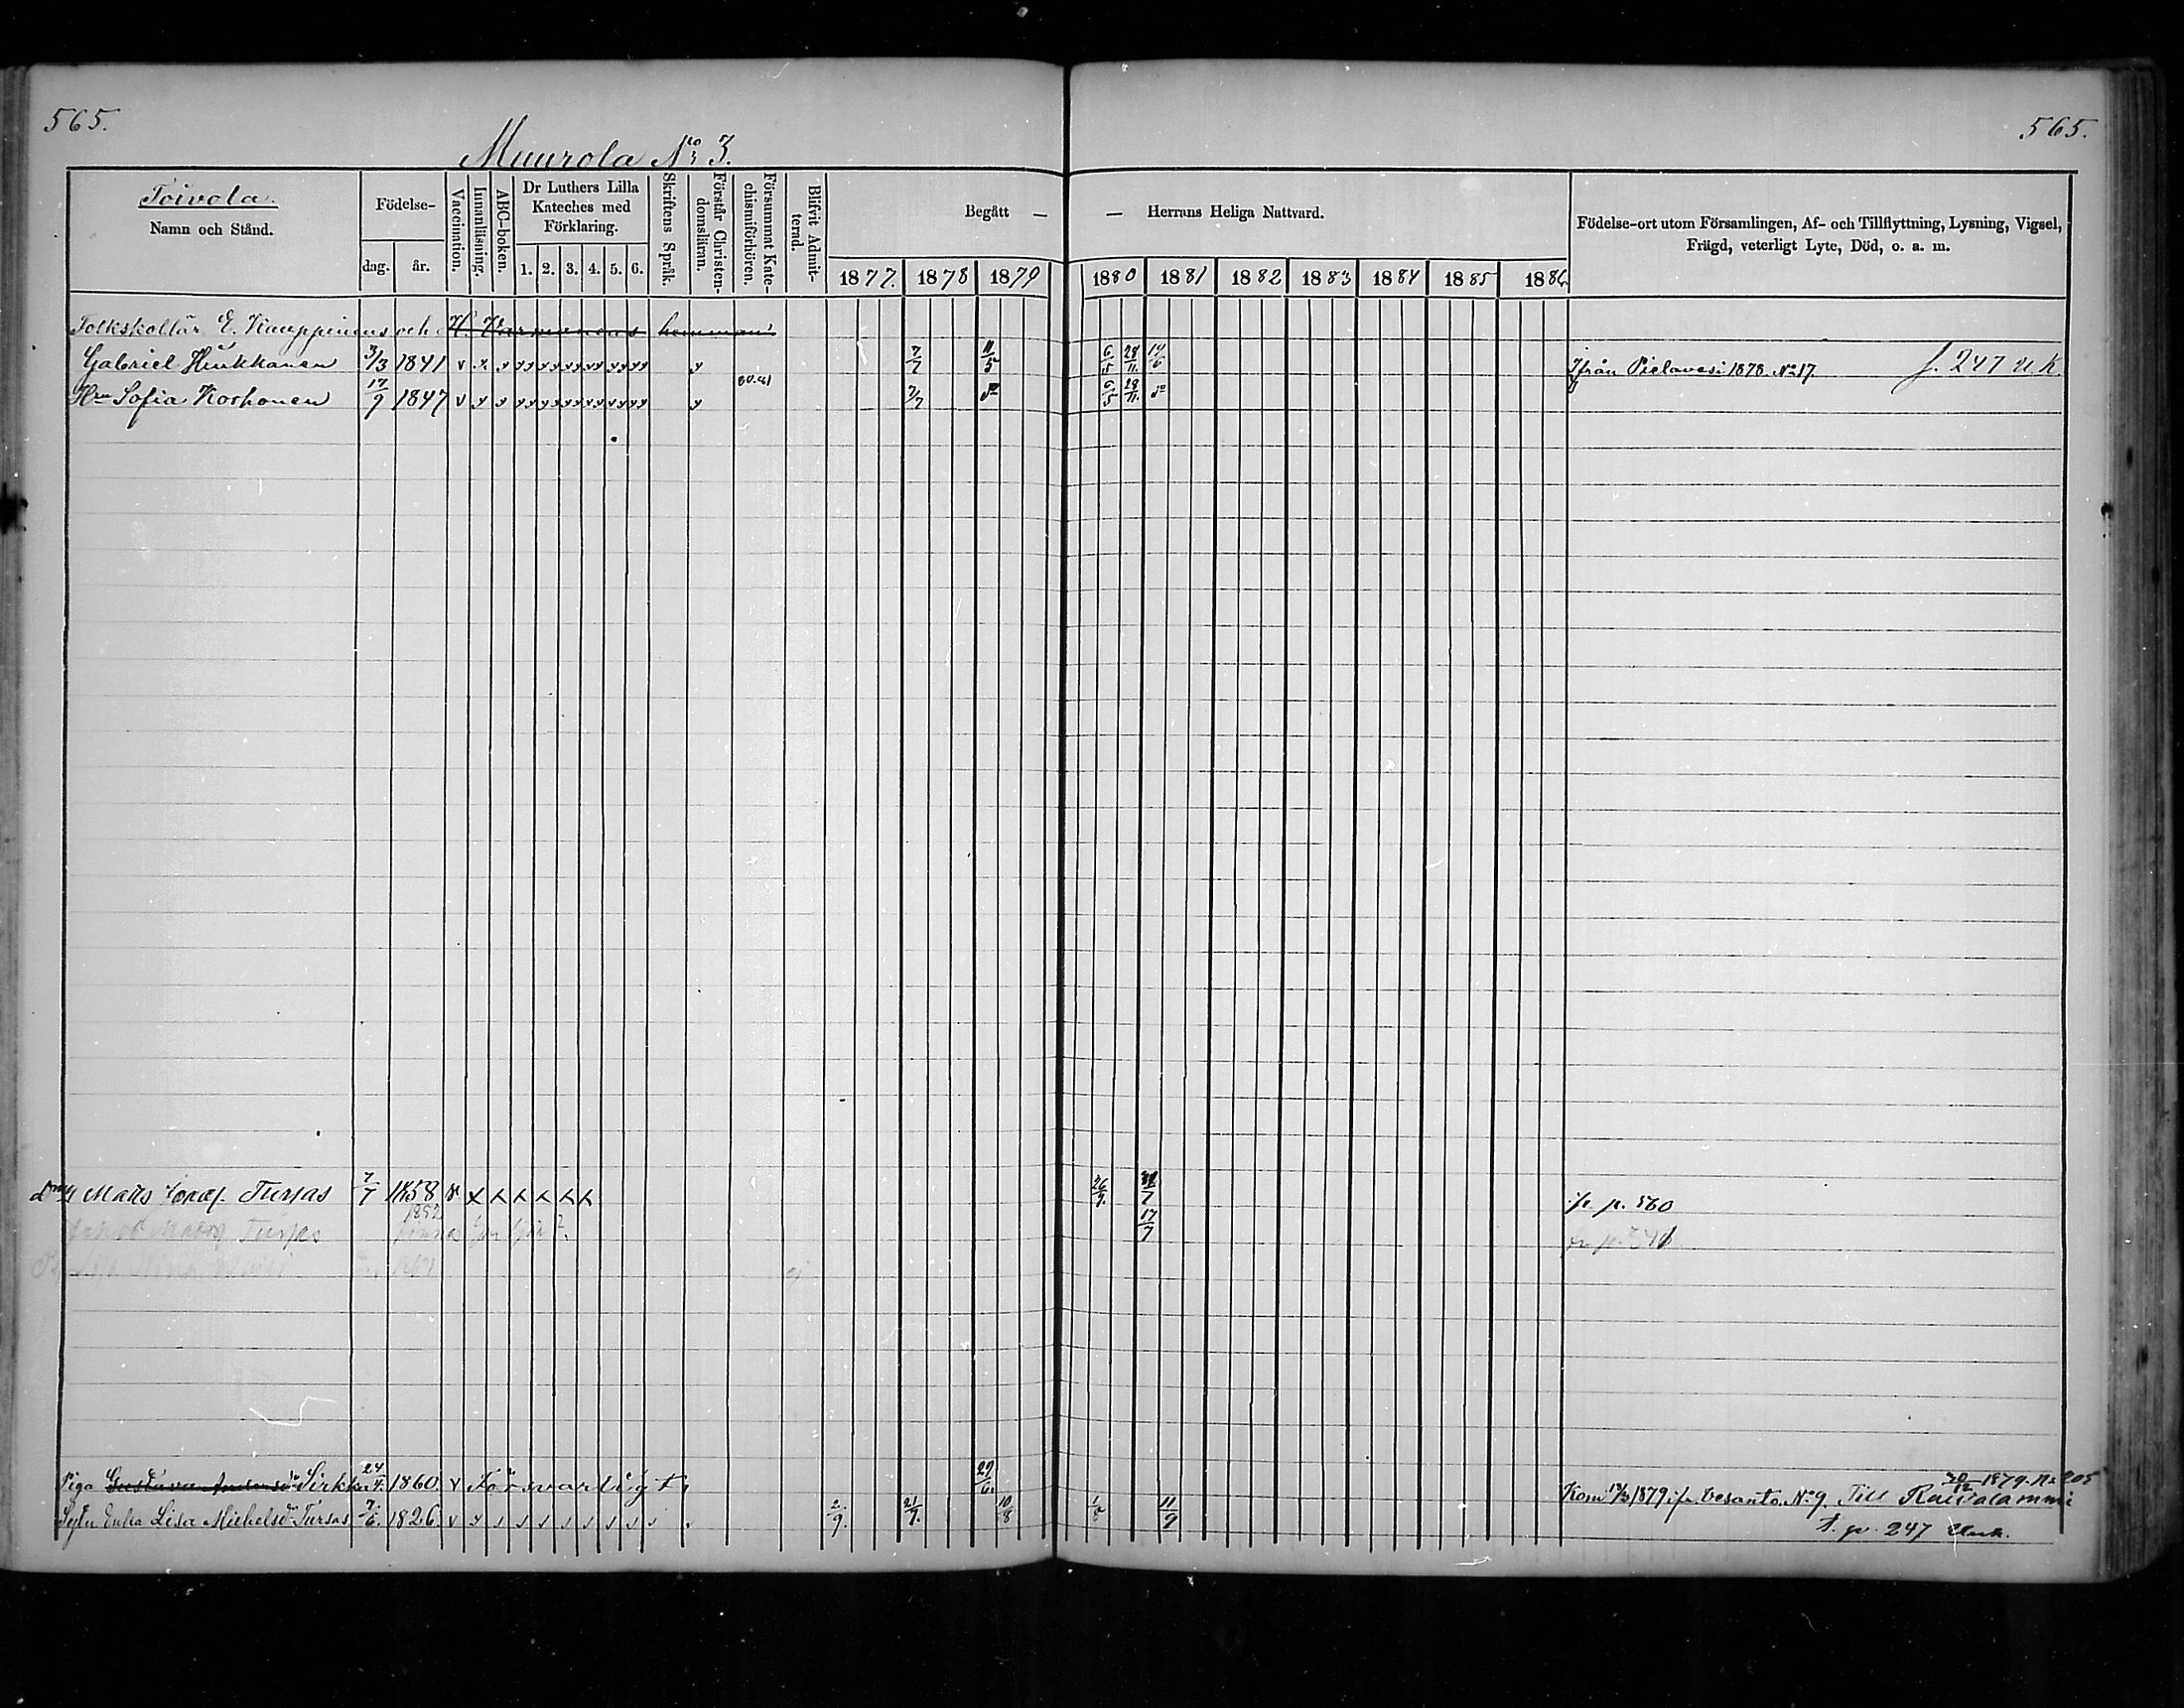 565.
565.
Muurola No 3.
Toivola.
Namn och Stånd.
Födelse-
dag.
år.
Vaccination.
Innanläsning.
ABC-boken.
Dr Luthers Lilla
Kateches med
Förklaring.
1. 2. 3. 4. 5. 6.
Skriftens Språk.
Förstår Christen-
domsläran.
Försummat Kate-
chismiförhören.
Blifvit Admit-
terad.
Begått —
— Herrans Heliga Nattvard.
1877. 1878 1879 1880 1881 1882 1883 1884 1885 1886
Födelse-ort utom Församlingen, Af- och Tillflyttning, Lysning, Vigsel,
Frägd, veterligt Lyte, Död, o. a. m.
E. Kauppinens och hemman
Gabriel Hiukkanen 3/3 1841 7/7 11/5 6/5 28/11 19/6 Ifrån Pielavesi 1878. No 17. f. 247 u. k.
Hru Sofia Korhonen 17/9 1847 7/7 do 6/5 28/11 do
Mats Tursas 7/7 1858 26/9. p. 560
1852
Tursas 17/7
Piga Gustava Sirkka 24/4. 1860 v Försvarligt 29/6. Kom 1879 ifr Vesanto No 9. Till Rautalammi 30/12 1879. No 205
Enka Lisa Michelsdr Tursas 7/6. 1826. 2/9. 21/9. 10/8 1/8 11/9 f. p. 247